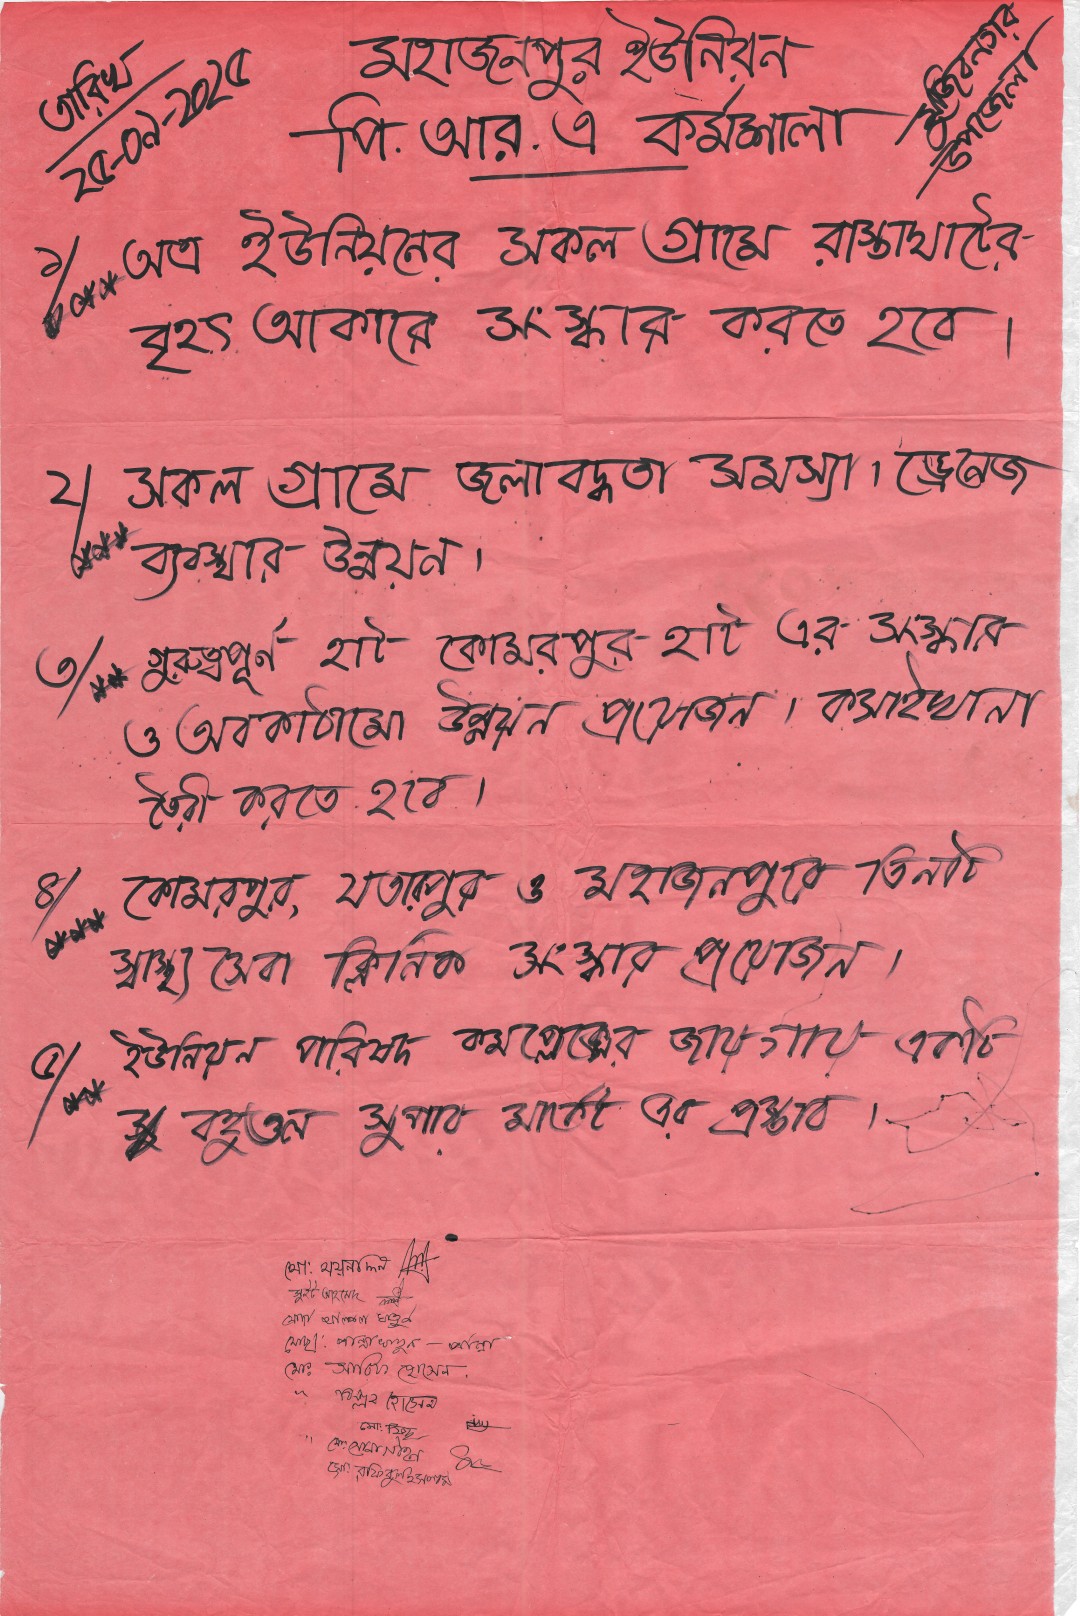 তারিখ
২৫-০৯-২০২৫
মহাজনপুর ইউনিয়ন
পি. আর. এ কর্মশালা
মুজিবনগর
উপজেলা
১/ *** অত্র ইউনিয়নের সকল গ্রামে রাস্তাঘাটের
বৃহৎ আকারে সংস্কার করতে হবে।
২/ সকল গ্রামে জলাবদ্ধতা সমস্যা। ড্রেনেজ
*** ব্যবস্থার উন্নয়ন।
৩/ ** গুরুত্বপূর্ণ হাট কোমরপুর হাট এর সংস্কার
ও অবকাঠামো উন্নয়ন প্রয়োজন। কসাইখানা
তৈরী করতে হবে।
৪/ *** কোমরপুর, যতারপুর ও মহাজনপুরে তিনটি
স্বাস্থ্য সেবা ক্লিনিক সংস্কার প্রয়োজন।
৫/ ** ইউনিয়ন পরিষদ কমপ্লেক্সের জায়গায় একটি
বহুতল সুপার মার্কেট এর প্রস্তাব।
মো:
মোছা: পান্না খাতুন - পান্না
মোঃ হোসেন
" হোসেন
মো:
মো:
মো: রফিকুল ইসলাম